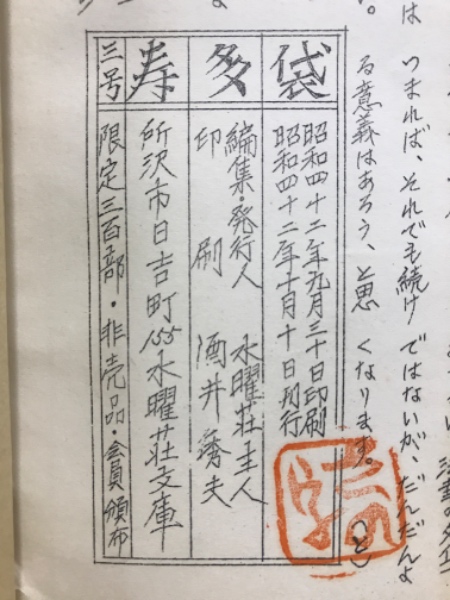 は
つまれば、それでも続け
ではないが、だんだんよ
る意義はあろう、と思
くなります。
袋
多
寿
三号
昭和四十二年九月三十日印刷
昭和四十二年十月十日刊行
編集・発行人 水曜荘主人
印刷 酒井秀夫
所沢市日吉町155水曜荘文庫
限定三百部・非売品・会員頒布